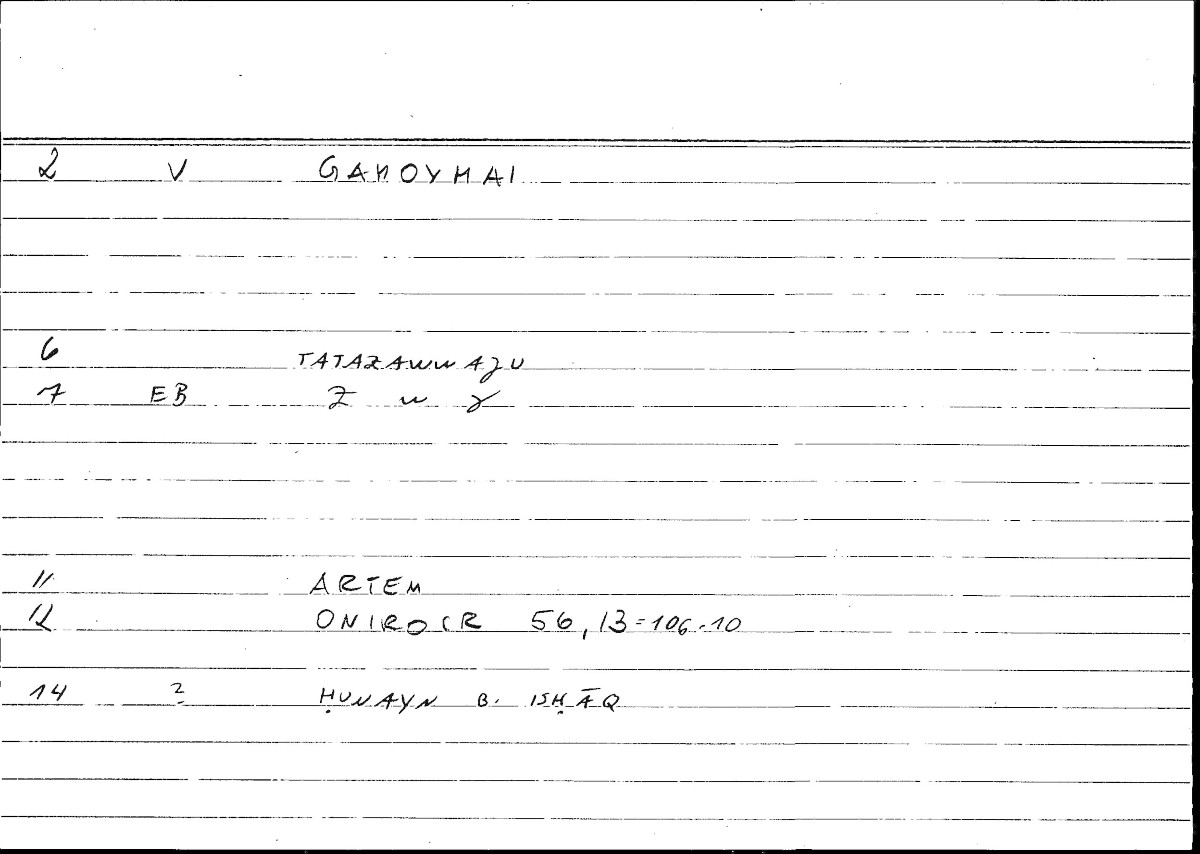 2 V GAMOYMAI
6 TATAZAWWAJU
7 EB Z W J
11 ARTEM
12 ONIROCR 56,13=106.10
14 ? ḤUNAYN B. ISḤĀQ